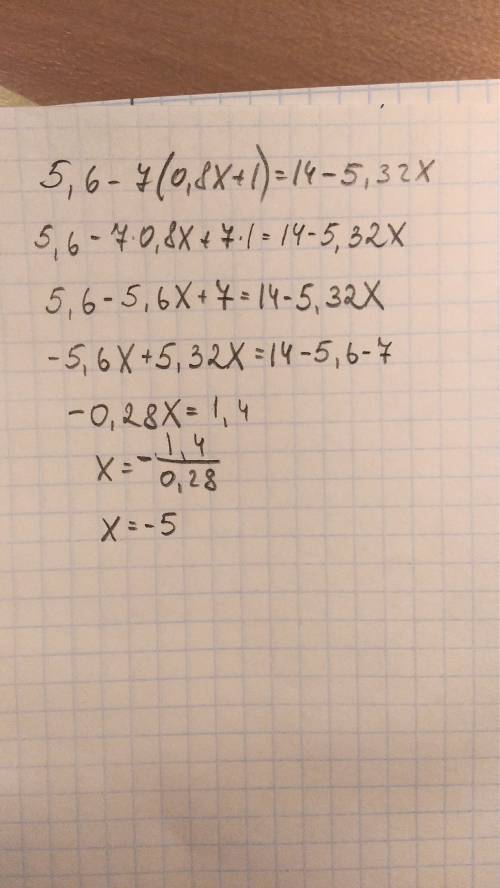 5,6 - 7(0,8x+1)=14-5,32x
5,6 - 7·0,8x + 7·1 = 14-5,32x
5,6 - 5,6x + 7 = 14-5,32x
-5,6x+5,32x=14-5,6-7
-0,28x = 1,4
x = - 1,4/0,28
x = -5